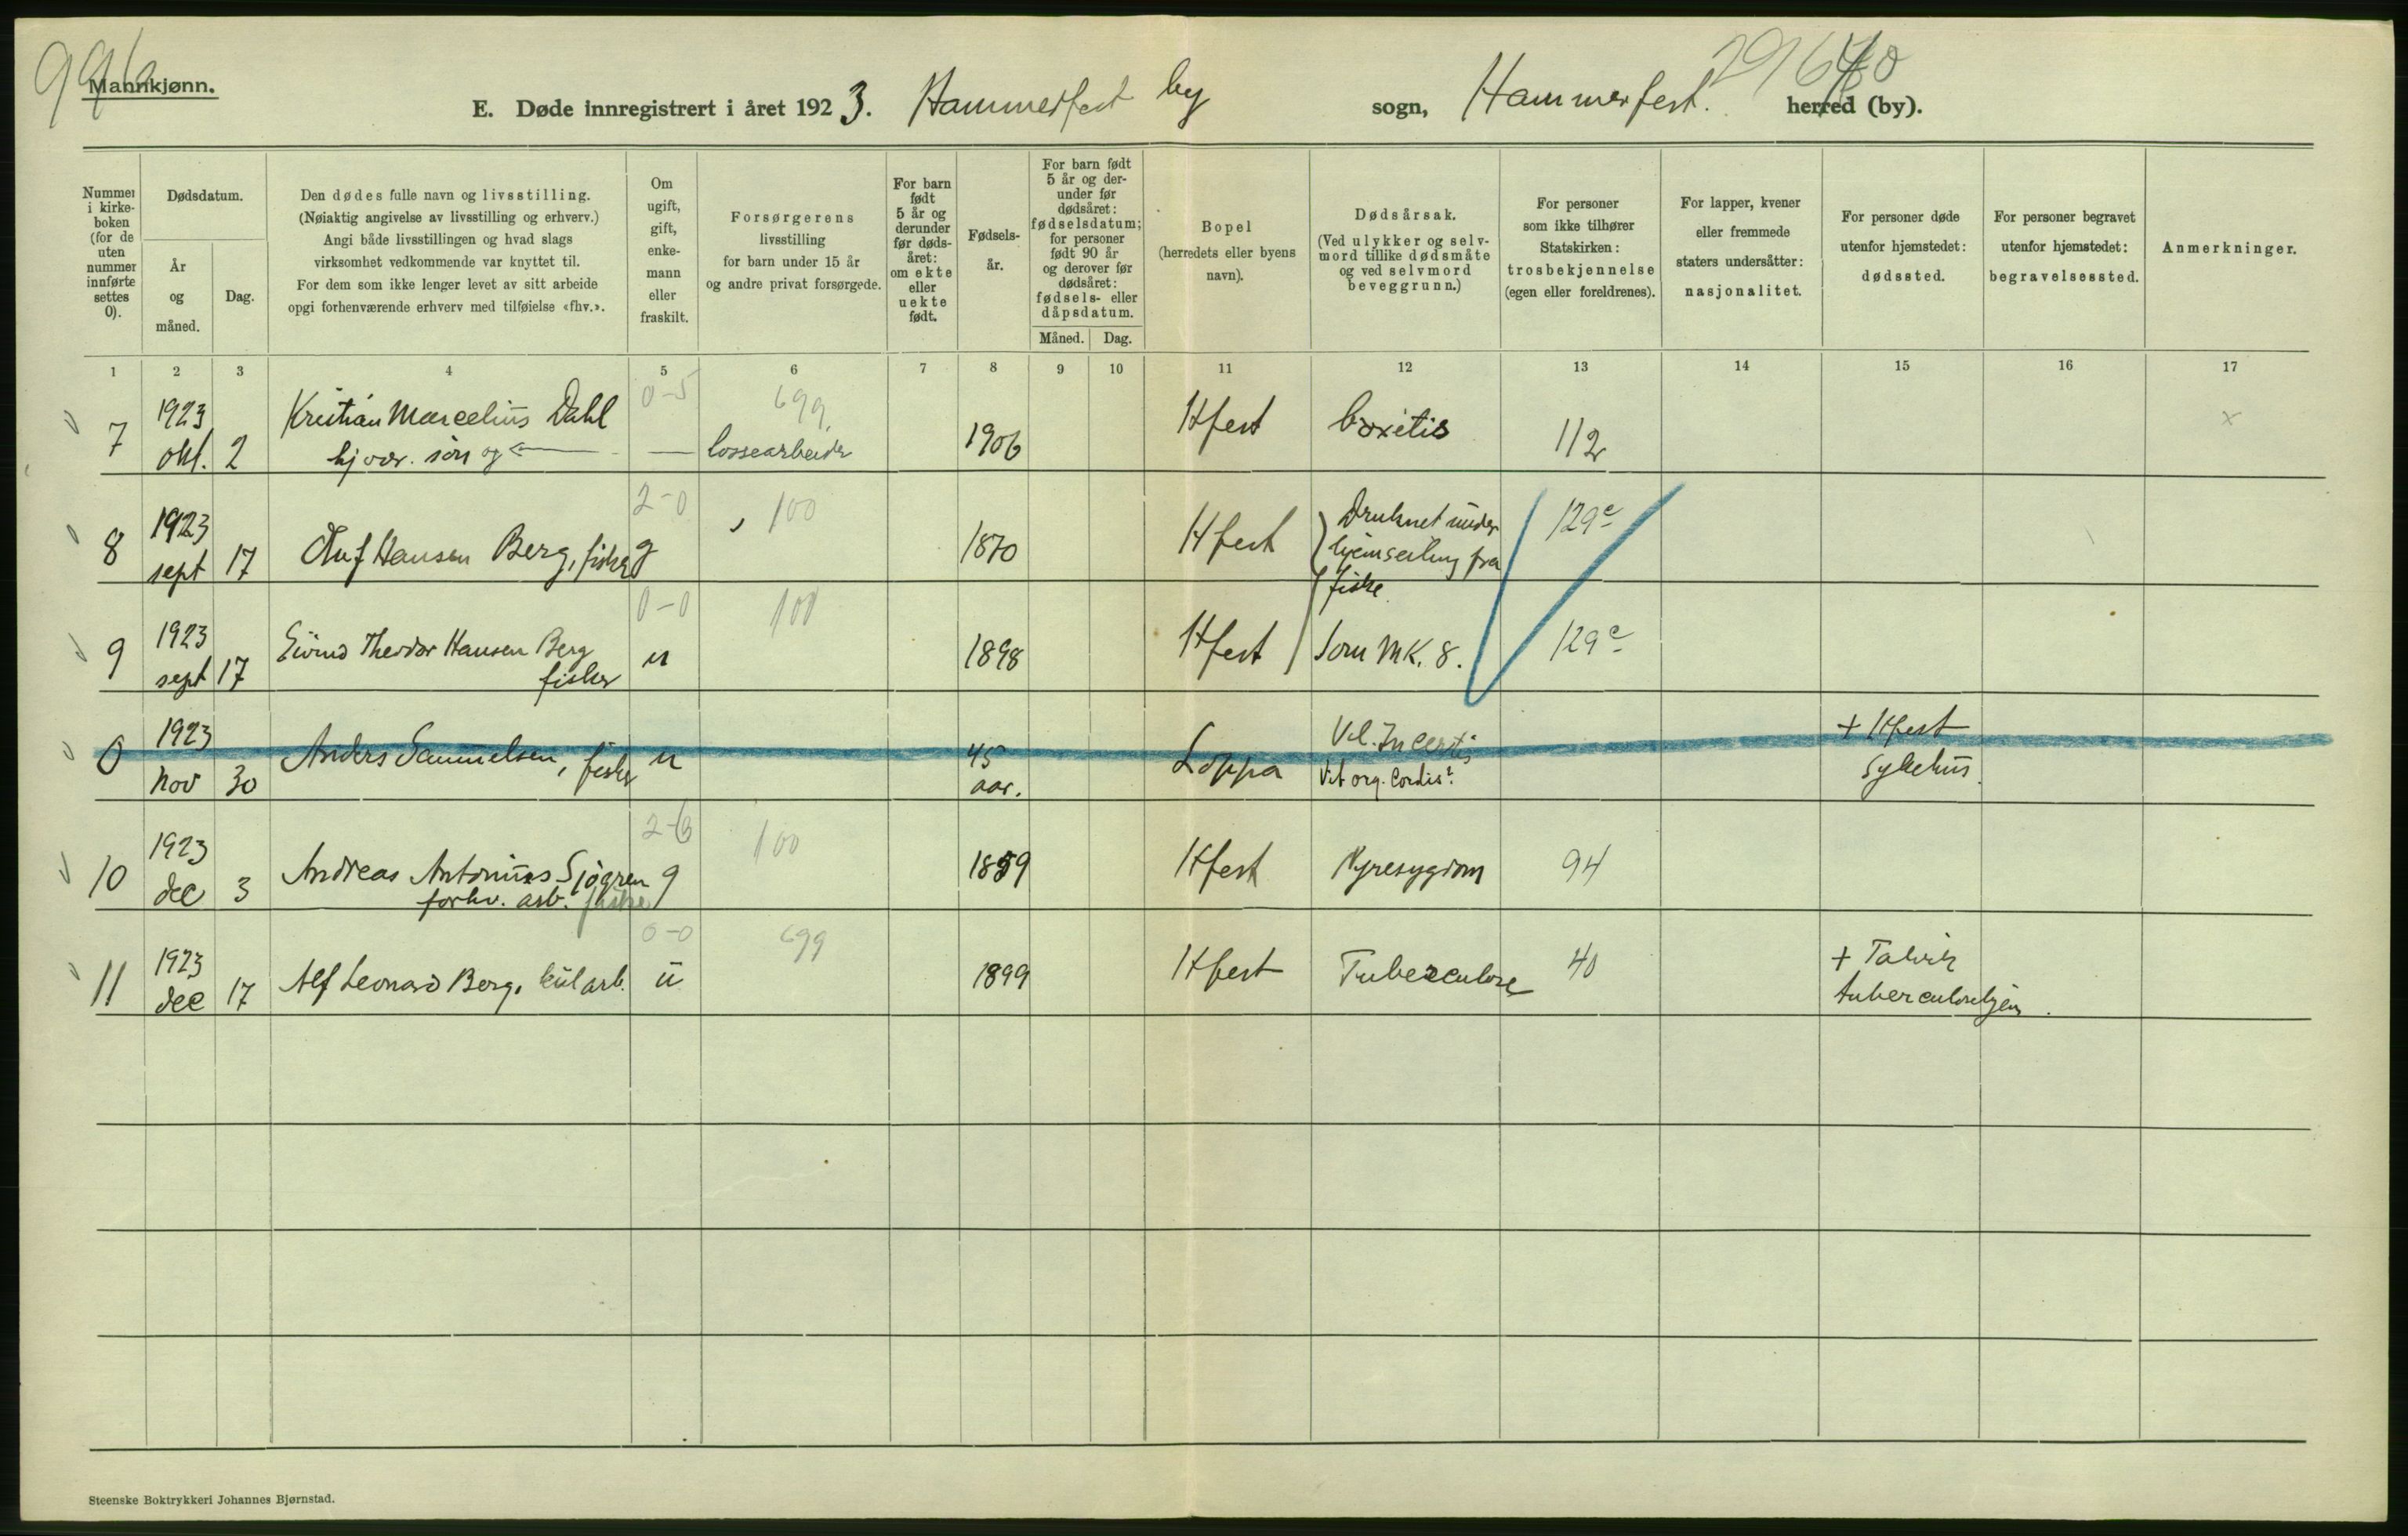 996
Mannkjønn.
E. Døde innregistrert i året 1923. Hammerfest by sogn, Hammerfest. herred (by).
Nummer i kirkeboken (for de uten nummer innførte settes 0).
Dødsdatum.
År og måned.
Dag.
Den dødes fulle navn og livsstilling.
(Nøiaktig angivelse av livsstilling og erhverv.)
Angi både livsstillingen og hvad slags
virksomhet vedkommende var knyttet til.
For dem som ikke lenger levet av sitt arbeide
opgi forhenværende erhverv med tilføielse «fhv.».
Om
ugift,
gift,
enke-
mann
eller
fraskilt.
Forsørgerens
livsstilling
for barn under 15 år
og andre privat forsørgede.
For barn
født
5 år og
derunder
før døds-
året:
om ekte
eller
uekte
født.
Fødsels-
år.
For barn født
5 år og der-
under før
dødsåret:
fødselsdatum;
for personer
født 90 år
og derover før
dødsåret:
fødsels- eller
dåpsdatum.
Måned.
Dag.
Bopel
(herredets eller byens
navn).
Dødsårsak.
(Ved ulykker og selv-
mord tillike dødsmåte
og ved selvmord
beveggrunn.)
For personer
som ikke tilhører
Statskirken:
trosbekjennelse
(egen eller foreldrenes).
For lapper, kvener
eller fremmede
staters undersåtter:
nasjonalitet.
For personer døde
utenfor hjemstedet:
dødssted.
For personer begravet
utenfor hjemstedet:
begravelsessted.
Anmerkninger.
1 2 3 4 5 6 7 8 9 10 11 12 13 14 15 16 17
0-5 699
7 1923 okt. 2 Kristian Marcelius Dahl
søn og lossearbeider 1906 Hfest Coxitis 112 x
2-0 100
8 1923 sept 17 Oluf Hansen Berg, fisker g 1870 Hfest Druknet under
hjemseiling fra
fiske 129c
0-0 100
9 1923 sept 17 Eivind Theodor Hansen Berg
fisker u 1898 Hfest Som MK. 8. 129c
0 1923 Nov 30 Anders Samuelsen, fisker u 45 aar. Loppa
Vit org. Cordis? + Hfest
Sykehus.
2-6 100
10 1923 dec 3 Andreas Antonius Sjögren
forhv. arb. fisker g 1859 Hfest Nyresygdom 94
0-0 699
11 1923 dec 17 Alf Leonard Berg, kularb. u 1899 Hfest Tuberculose 40 + Talvik
tuberculosehjem.
Steenske Boktrykkeri Johannes Bjørnstad.